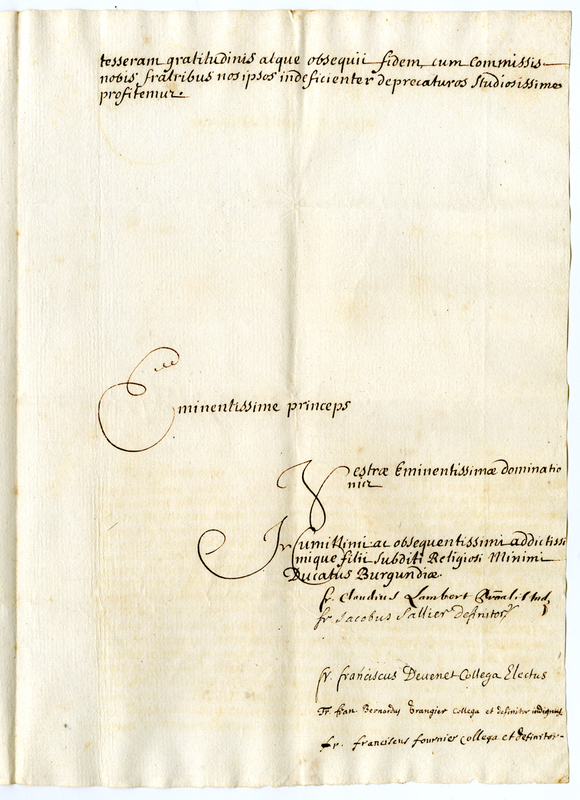 tesseram gratitudinis atque obsequii fidem, cum commissis
nobis fratribus nos ipsos indeficienter deprecaturos studiosissime
profitemur.
Eminentissime princeps
Vestræ Eminentissimæ dominatio
nis
humillimi ac obsequentissimi addictissi
mique filii subditi Religiosi Minimi
Ducatus Burgundiæ.
fr. Claudius Lambert
fr. Jacobus Sallier definitor
fr. franciscus Devenet Collega Electus
Fr. fran. Bernardus Grangier collega et definitor indignus
fr. franciscus fournier collega et definitor